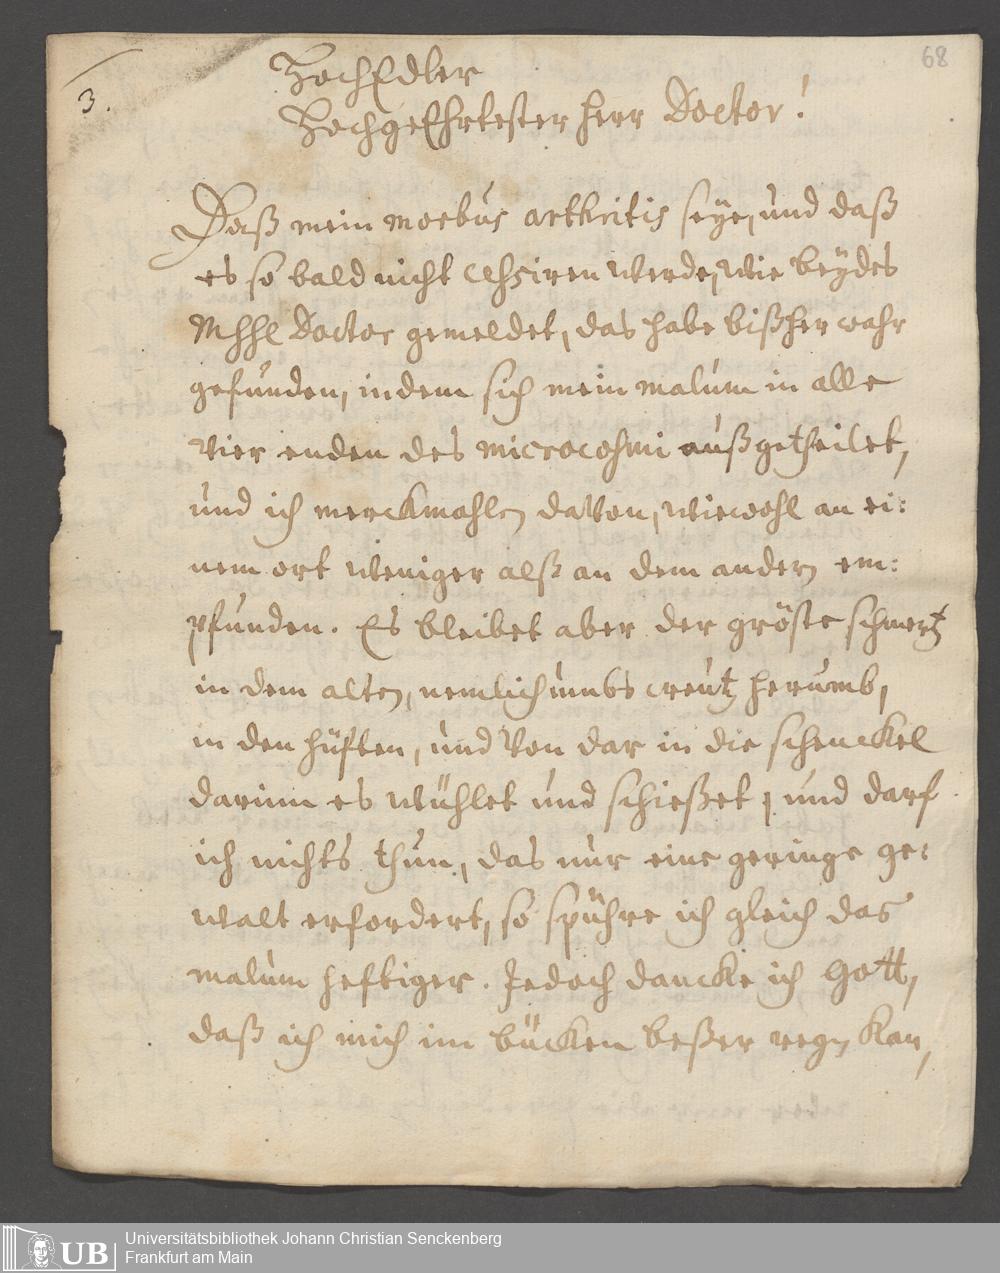 68
3.
HochEdler
HochgeEhrtester Herr Doctor!
Daß mein morbus arthritis seye, und daß
es so bald nicht cessiren werde, wie beydes
MhhE Doctor gemeldet, das habe bißher wahr
gefunden, indem sich mein malum in alle
vier enden des microcosmi außgetheilet,
und ich merckmahlen davon, wiewohl an ei:
nem ort weniger alß an dem andern em:
pfunden. Es bleibet aber der gröste schmertz
in dem alten, nemlich umbs creutz herumb,
in den hüfften, und von dar in die schenckel
darinn es wühlet und schießet, und darf
ich nichts thun, das nur eine geringe ge:
walt erfordert, so spühre ich gleich das
malum heftiger. Jedoch dancke ich Gott,
daß ich mich im bücken beßer regen kan,
UB
Universitätsbibliothek Johann Christian Senckenberg
Frankfurt am Main